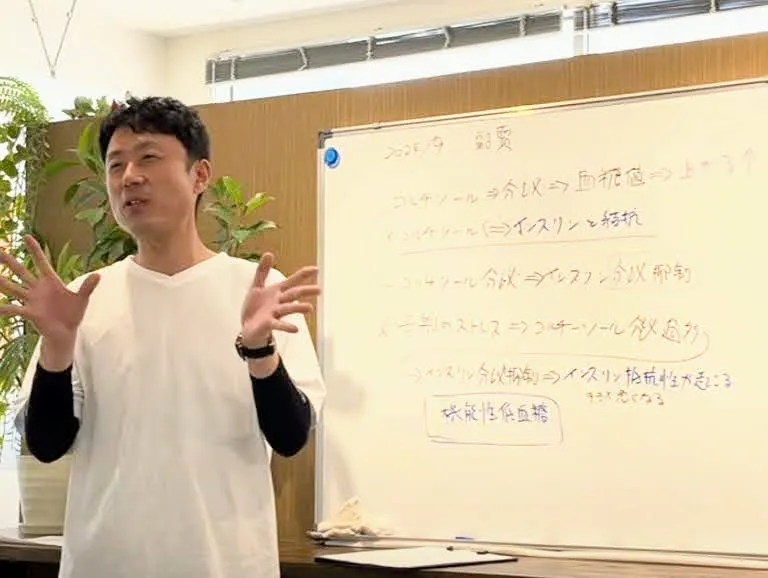 コルチゾール⇒分泌⇒血糖値⇒上がる↑
コルチゾール⇐⇒インスリンと拮抗
コルチゾール分泌⇒インスリン分泌抑制
ストレス⇒コルチゾール分泌過多
→インスリン分泌抑制⇒インスリン抵抗性が起こる
悪くなる
機能性低血糖